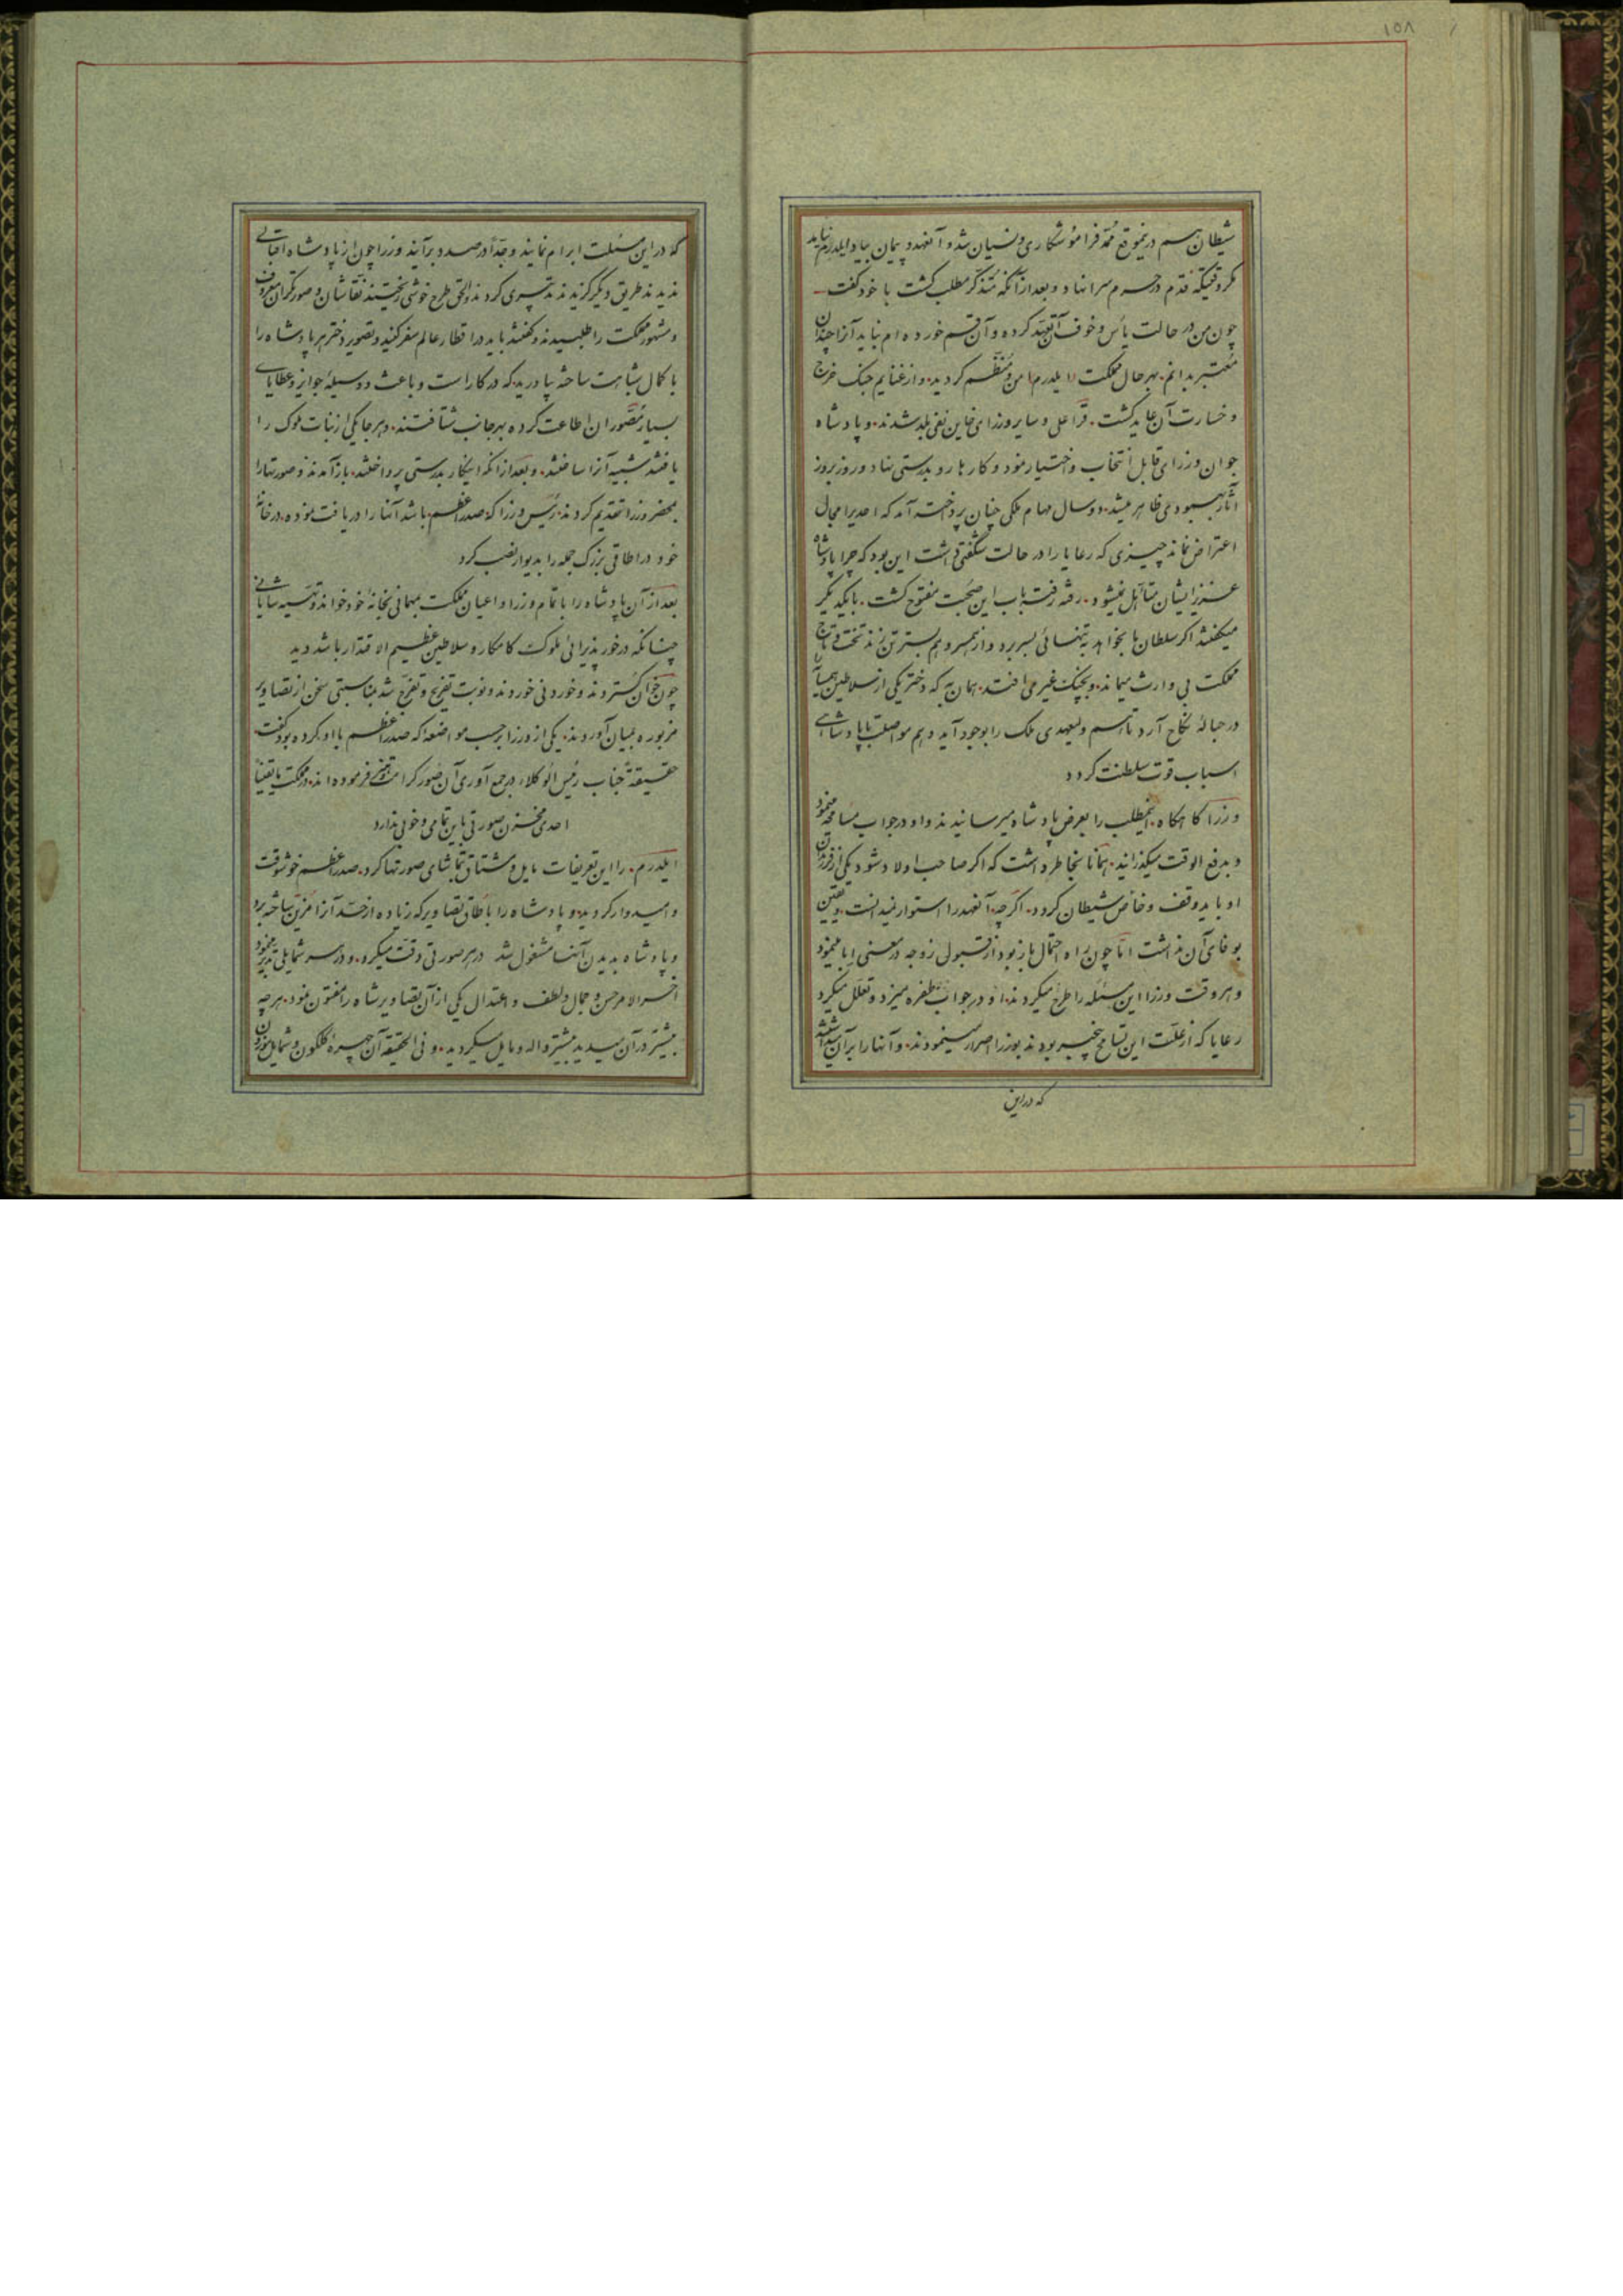 ۱۵۸
شیطان هم در نموقع ممد فراموشکاری و نسیان شد و آنعهد و پیمان بیاد ایلدرم نیاید
مکر وقتیکه قدم در حرم سرا نهاد و بعد از آنکه متذکر مطلب کشت با خود کفت
چون من در حالت یأس و خوف آن تعهد کرده و آن قسم خورده ام نباید آنرا چندان
معتبر بدانم. بهر حال مملکت ایلدرم امن و منظم کردید. و از غنایم جنک خرج
و خسارت آن عاید کشت. قرا علی و سایر وزرای خاین نفی بلد شدند. و پادشاه
جوان وزرای قابل انتخاب و اختیار نمود و کارها رو بدرستی نهاد و روز بروز
آثار بهبودی ظاهر میشد. دو سال مهام ملکی چنان پرداخته آمد که احدیرا مجال
اعتراض نماند چیزی که رعایا را در حالت شکفتی داشت این بود که چرا پادشاه
عزیز ایشان متأهل نمیشود. رفته رفته باب این صحبت مفتوح کشت. با یکدیکر
میکفتند اکر سلطان ما بخواهد بتنهائی بسر برد و از همسر و هم بستر تن زند تخت و تاج
مملکت بی وارث میماند. و بچنک غیر می افتد. همان به که دختر یکی از سلاطین همسایه را
در حبالهٔ نکاح آرد تا هم ولیعهدی ملک را بوجود آید و هم مواصلت با پادشاهی
اسباب قوت سلطنت کردد
وزرا کاهکاه اینمطلب را بعرض پادشاه میرسانیدند و او در جواب مسامحه مینمود
و بدفع الوقت میکذرانید. همانا بخاطر داشت که اکر صاحب اولاد شود یکی از فرزندان
او باید وقف و خاص شیطان کردد. اکرچه آنعهد را استوار نمیدانست و یقین
بوفای آن نداشت اما چون راه احتمال باز بود از قبول زوجه در معنی ابا مینمود
و هر وقت وزرا این مسئله را طرح میکردند. او در جواب طفره میزد و تعلل میکرد
رعایا که از علت این تسامح بیخبر بودند بوزرا اصرار مینمودند. و آنها را بر آن داشتند
که در این
که در این مسئلت ابرام نمایند و جداً در صدد بر آیند وزرا چون از پادشاه اقبالی
ندیدند طریق دیکر کزیدند تدبیری کردند و الحق طرح خوشی ریختند نقاشان و صورتکران معروف
و مشهور مملکت را طلبیدند و کفتند باید در اقطار عالم سفر کنید و تصویر دختر هر پادشاه را
با کمال شباهت ساخته بیاورید که در کار است و باعث و وسیلهٔ جوایز و عطایای
بسیار مصوران اطاعت کرده بهر جانب شتافتند. و هر جا یکی از بنات ملوک را
یافتند شبیه آنرا ساختند. و بعد از آنکه اینکار بدرستی پرداختند. باز آمدند و صورتها را
بمحضر وزرا تقدیم کردند. رئیس وزرا که صدر اعظم باشد آنها را دریافت نموده. در خانهٔ
خود در اطاقی بزرک جمله را بدیوار نصب کرد
بعد از آن پادشاه را با تمام وزرا و اعیان مملکت مهمانی بخانهٔ خود خواند و تهیه شایانی
چنانکه در خور پذیرائی ملوک کامکار و سلاطین عظیم الاقتدار باشد دید
چون خوان کستردند و خوردنی خوردند و نوبت تفریح و تفرج شد بمناسبتی سخن از تصاویر
مزبوره بمیان آوردند. یکی از وزرا بر حسب مواضعه که صدر اعظم با او کرده بود کفت
حقیقةً جناب رئیس الوکلاء در جمع آوری آن صور کرامت فرموده اند. در مملکت ما یقیناً
احدی مخزن صورتی باین تمامی و خوبی ندارد
ایلدرم. را این تعریفات مایل و مشتاق تماشای صورتها کرد. صدر اعظم خوشوقت
و امیدوار کردید. و پادشاه را باطاق تصاویر که زیاده از حد آنرا مزین ساخته برد
و پادشاه بدیدن آنها مشغول شد در هر صورتی دقت میکرد. و در هر شمایلی تدبر مینمود
آخر الامر حسن و جمال و لطف و اعتدال یکی از آن تصاویر شاه را مفتون نمود. هر چه
بیشتر در آن میدید بیشتر واله و مایل میکردید. و فی الحقیقه آن چهرهٔ کلکون و شمایل موزون